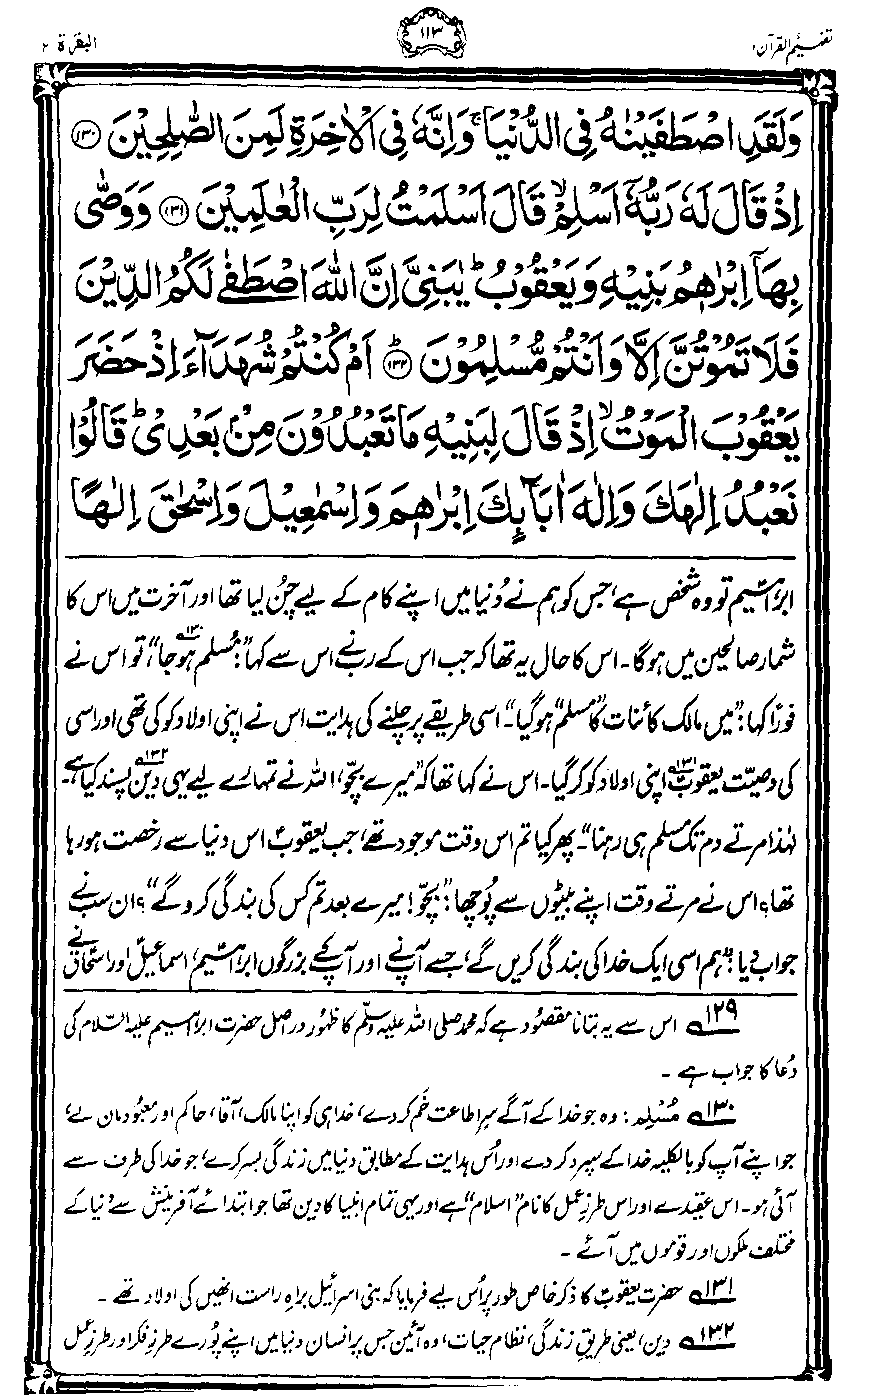 تفہیم القرآن ۱
۱۱۳
البقرۃ ۲
وَلَقَدِ اصْطَفَيْنٰهُ فِى الدُّنْيَا ۚ وَاِنَّهٗ فِى الْاٰخِرَةِ لَمِنَ الصّٰلِحِيْنَ ﴿۱۳۰﴾
اِذْ قَالَ لَهٗ رَبُّهٗٓ اَسْلِمْ ۙ قَالَ اَسْلَمْتُ لِرَبِّ الْعٰلَمِيْنَ ﴿۱۳۱﴾ وَوَصّٰى
بِهَآ اِبْرٰهٖمُ بَنِيْهِ وَيَعْقُوْبُ ؕ يٰبَنِىَّ اِنَّ اللّٰهَ اصْطَفٰى لَكُمُ الدِّيْنَ
فَلَا تَمُوْتُنَّ اِلَّا وَاَنْتُمْ مُّسْلِمُوْنَ ؕ ﴿۱۳۲﴾ اَمْ كُنْتُمْ شُهَدَآءَ اِذْ حَضَرَ
يَعْقُوْبَ الْمَوْتُ ۙ اِذْ قَالَ لِبَنِيْهِ مَا تَعْبُدُوْنَ مِنْۢ بَعْدِىْ ؕ قَالُوْا
نَعْبُدُ اِلٰهَكَ وَاِلٰهَ اٰبَآئِكَ اِبْرٰهٖمَ وَاِسْمٰعِيْلَ وَاِسْحٰقَ اِلٰهًا
ابراہیمؑ تو وہ شخص ہے، جس کو ہم نے دُنیا میں اپنے کام کے لیے چُن لیا تھا اور آخرت میں اس کا
شمار صالحین میں ہوگا۔ اس کا حال یہ تھا کہ جب اس کے رب نے اس سے کہا: ”مُسلم ہوجا“،۱۳۰ تو اس نے
فوراً کہا: ”میں مالک کائنات کا ”مسلم“ ہوگیا۔“ اسی طریقے پر چلنے کی ہدایت اس نے اپنی اولاد کو کی تھی اور اسی
کی وصیّت یعقوبؑ۱۳۱ اپنی اولاد کو کر گیا۔ اس نے کہا تھا کہ ”میرے بچّو! اللہ نے تمہارے لیے یہی دین۱۳۲ پسند کیا ہے۔
لہٰذا مرتے دم تک مسلم ہی رہنا“۔ پھر کیا تم اس وقت موجود تھے، جب یعقوبؑ اس دنیا سے رخصت ہو رہا
تھا؟ اس نے مرتے وقت اپنے بیٹوں سے پُوچھا: ”بچّو! میرے بعد تم کس کی بندگی کرو گے“؟ ان سب نے
جواب دیا: ”ہم اسی ایک خدا کی بندگی کریں گے، جسے آپ نے اور آپ کے بزرگوں ابراہیمؑ، اسماعیلؑ اور اسحاقؑ نے
۱۲۹؎ اس سے یہ بتانا مقصُود ہے کہ محمد صلی اللہ علیہ وسلّم کا ظہُور دراصل حضرت ابراہیم علیہ السّلام کی
دُعا کا جواب ہے۔
۱۳۰؎ مُسْلِم: وہ جو خدا کے آگے سرِ اطاعت خَم کر دے، خدا ہی کو اپنا مالک، آقا، حاکم اور معبُود مان لے،
جو اپنے آپ کو بالکلیہ خدا کے سپرد کر دے اور اُس ہدایت کے مطابق دنیا میں زندگی بسر کرے، جو خدا کی طرف سے
آئی ہو۔ اس عقیدے اور اس طرزِ عمل کا نام ”اسلام“ ہے اور یہی تمام انبیا کا دین تھا جو ابتدائے آفرینش سے دُنیا کے
مختلف ملکوں اور قوموں میں آئے۔
۱۳۱؎ حضرت یعقوبؑ کا ذکر خاص طور پر اُس لیے فرمایا کہ بنی اسرائیل براہِ راست انھیں کی اولاد تھے۔
۱۳۲؎ دین، یعنی طریقِ زندگی، نظامِ حیات، وہ آئین جس پر انسان دنیا میں اپنے پُورے طرزِ فکر اور طرزِ عمل